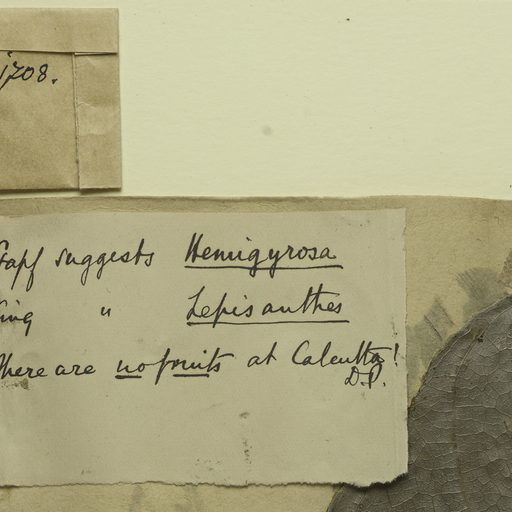 1708.
Stapf suggests Hemigyrosa
King " Lepisanthes
There are no fruits at Calcutta!
D.P.